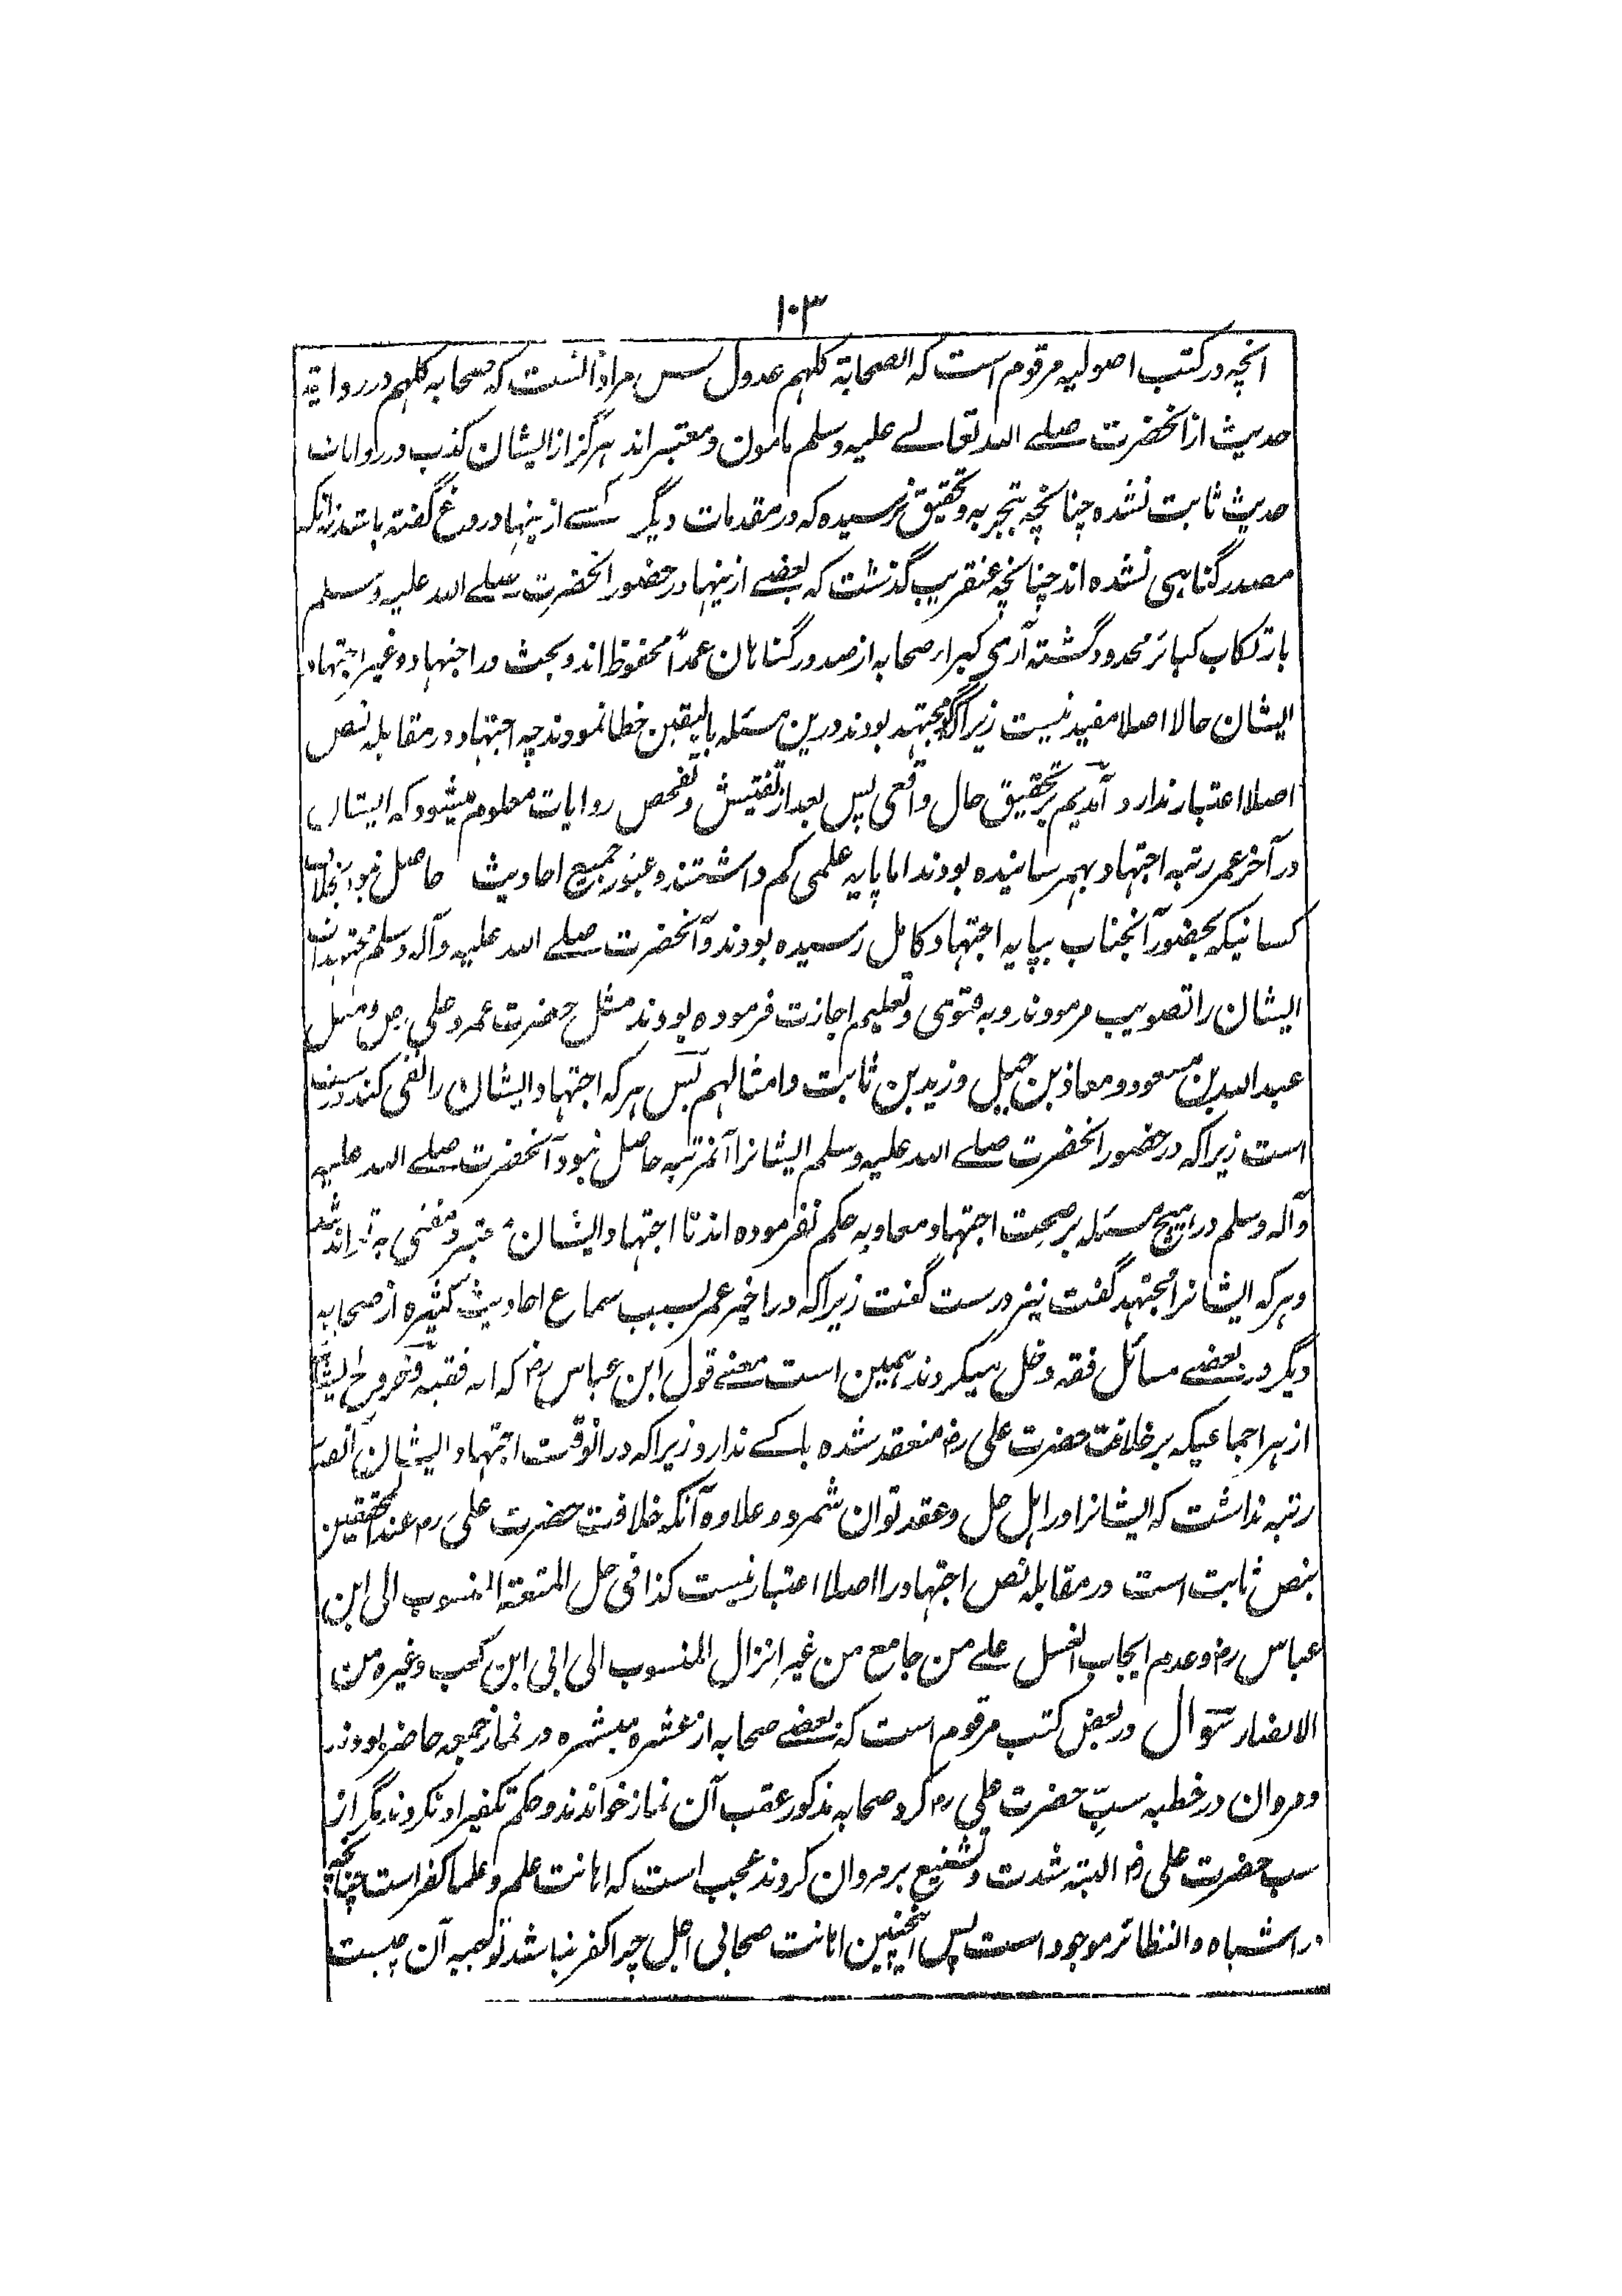 ١٠٣
انچہ در کتب اصولیه مرقوم است که الصحابة کلهم عدول پس مراد آنست که صحابه کلهم در روایة
حدیث از آنحضرت صلے اللہ تعالے علیه وسلم مامون و معتبر اند هرگز از ایشان کذب در روایات
حدیث ثابت نشده چنانچه بتجربه و تحقیق نرسیده که در مقدمات دیگر کسے ازینها دروغ گفته باشد نه آنکه
مصدر گناهی نشده اند چنانچه عنقریب گذشت که بعضے ازینها در حضور آنحضرت صلے اللہ علیه وسلم
بارتکاب کبائر محدود گشته آری کبراء صحابه از صدور گناهان عمداً محفوظ اند و بحث در اجتهاد و غیر اجتهاد
ایشان حالا اصلا مفید نیست زیرا که اگر مجتهد بودند درین مسئله بالیقین خطا نمودند چه اجتهاد در مقابله نص
اصلا اعتبار ندارد آمدیم بر تحقیق حال واقعی پس بعد از تفتیش و تفحص روایات معلوم میشود که ایشان
در آخر عمر رتبه اجتهاد بهم رسانیده بودند اما پایه علمی کم داشتند و عبور جمیع احادیث حاصل نبود بخلاف
کسانیکه بحضور آنجناب بپایه اجتهاد کامل رسیده بودند و آنحضرت صلے اللہ علیه وآله وسلم
ایشان را تصویب فرمودند و به فتوی و تعلیم اجازت فرموده بودند مثل حضرت عمر و علی
عبداللہ بن مسعود و معاذ بن جبل و زید بن ثابت و امثالهم پس هر که اجتهاد ایشان را نفی کند درست
است زیرا که در حضور آنحضرت صلے اللہ علیه وسلم ایشانرا آنمرتبه حاصل نبود و آنحضرت صلے اللہ علیه
وآله وسلم در هیچ مسئله بر صحت اجتهاد معاویه حکم نفرموده اند تا اجتهاد ایشان معتبر و مفتی به تواند شد
و هر که ایشانرا مجتهد گفت نیز درست گفت زیرا که در اخیر عمر بسبب سماع احادیث کثیره از صحابه
دیگر در بعضے مسائل فقه دخل میکردند همین است معنے قول ابن عباس رض که انه فقیه و خروج ایشان
از هر اجماعیکه بر خلافت حضرت علی رض منعقد شده باکے ندارد زیرا که در آنوقت اجتهاد ایشان
رتبه نداشت که ایشانرا در اهل حل و عقد توان شمرد و علاوه آنکه خلافت حضرت علی رض عند المحققین
بنص ثابت است و در مقابله نص اجتهاد را اصلا اعتبار نیست کذا فی حل المتعة المنسوب الی ابن
عباس رض و عدم ایجاب الغسل علے من جامع من غیر انزال المنسوب الی ابی ابن کعب وغیره من
الانصار سوال در بعض کتب مرقوم است که بعضے صحابه از عشره مبشره در نماز جمعه حاضر بودند
و مروان در خطبه سبّ حضرت علی رض کرد صحابه مذکور عقب آن نماز خواندند و حکم تکفیر او نکردند مگر از
سب حضرت علی رض البته شدت و تشنیع بر مروان کردند عجب است که اهانت علم و علما کفر است چنانچه
در اشباه والنظائر موجود است پس اینچنین اهانت صحابی اجل چرا کفر نباشد توجیه آن چیست